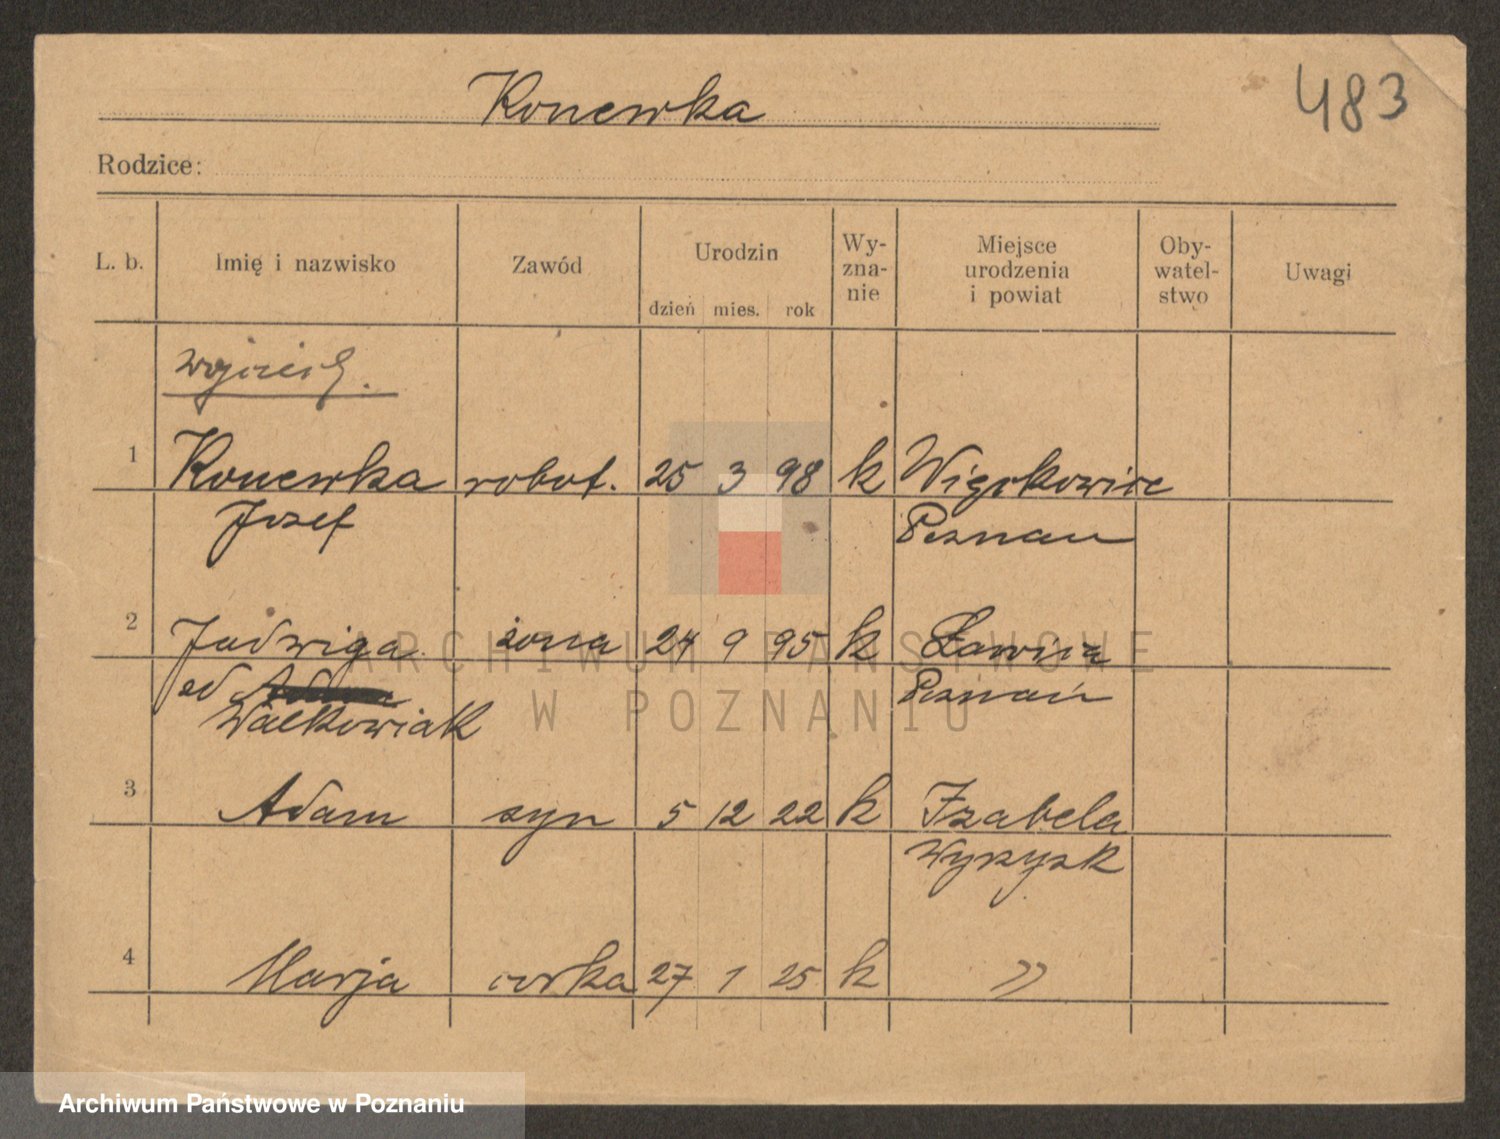 Konewka
483
Rodzice:
L. b. Imię i nazwisko Zawód Urodzin dzień mies. rok Wy-zna-nie Miejsce urodzenia i powiat Oby-watel-stwo Uwagi
Wojciech.
1 Konewka robot. 25 3 98 k Więckowice
Józef Poznań
2 Jadwiga żona 24 9 95 k Ławica
Walkowiak Poznań
3 Adam syn 5 12 22 k Izabela
Wyrzysk
4 Marja córka 27 1 25 k "
ARCHIWUM PAŃSTWOWE
W POZNANIU
Archiwum Państwowe w Poznaniu